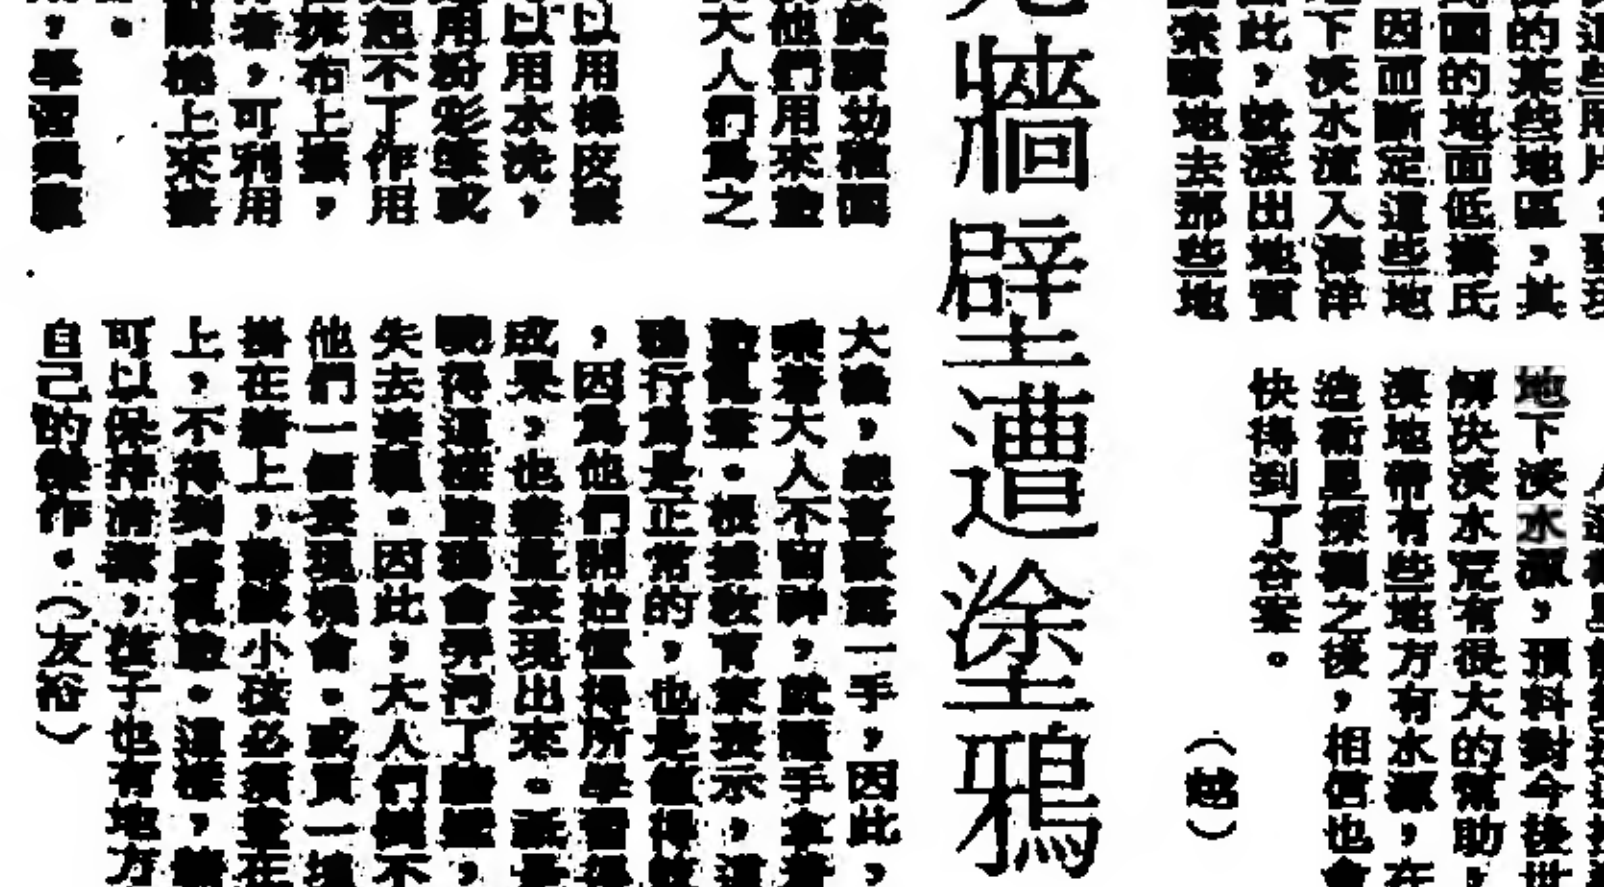 些用片，
的某些地區，其
的地面低攝氏
因而斷定這些地
下淡水流入海洋
此，就派出地質
地去那些地
地下淡水源，預料對今後世
解決淡水荒有很大的幫助，
漠地帶有些地方有水源，在
造衛星探測之後，相信也會
快得到了答案。
（越）
牆壁遭塗鴉
就讀幼稚園
他們用來塗
大人們為之
以用橡皮擦
以用水洗，
用粉彩筆或
起不了作用
抹布上擦，
者，可利用
上來擦
。
，學習與
大後，總喜歡露一手，因此，
乘着大人不留神，就隨手拿着
亂畫。根據教育家表示，這
種行為是正常的，也是值得鼓
，因為他們開始懂得所學習得
成果，也盡量表現出來。祇是
曉得這樣會弄污了牆壁，
失去美觀。因此，大人們倒不
他們一個表現機會。或買一塊
掛在牆上，告誡小孩必須畫在
上，不得到處亂塗。這樣，牆
可以保持清潔，孩子也有地方
自己的傑作。（友裕）